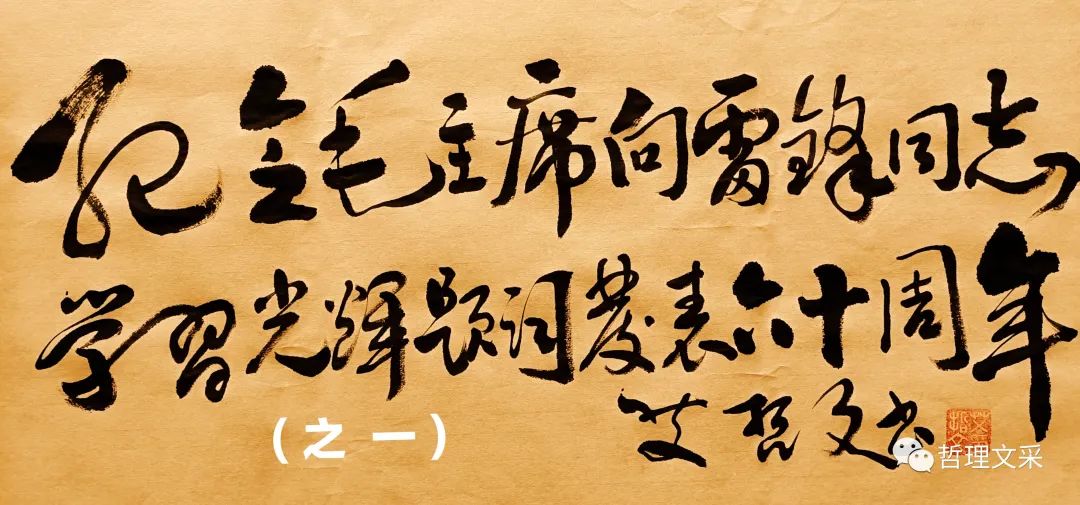 纪念毛主席向雷鋒同志
学習光輝题词發表六十周年
艾哲文书
（之一）
哲理文采